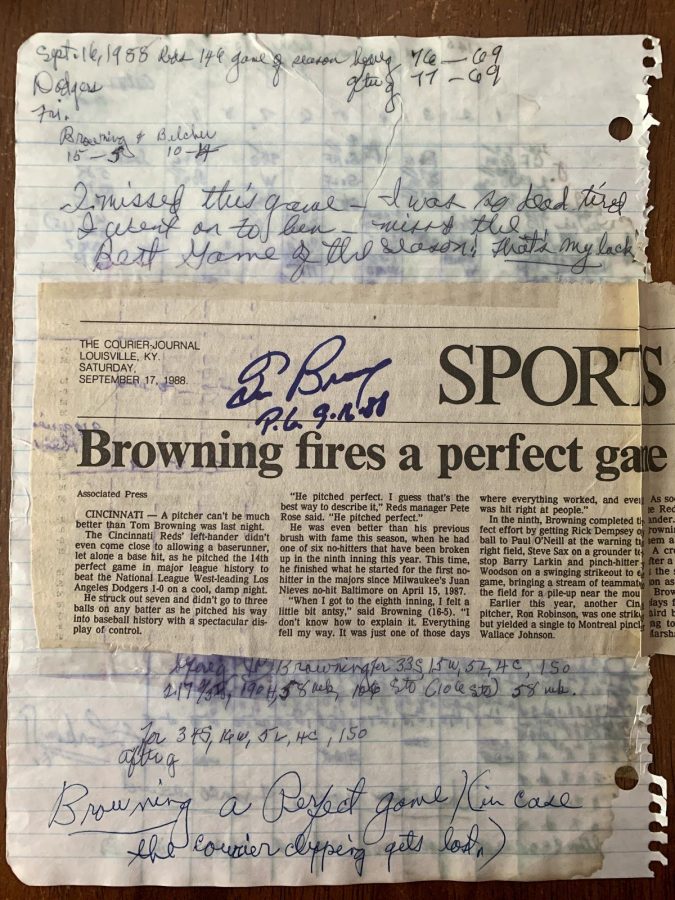 Sept. 16, 1988 Reds 146 game of season before 76 – 69
Dodgers after g 77 – 69
Fri.
Browning & Belcher
15 – 5 10 –
I missed this game – I was so dead tired
I went on to
Best Game of the season. that's my luck
THE COURIER-JOURNAL
LOUISVILLE, KY.
SATURDAY,
SEPTEMBER 17, 1988.
P.G. 9-16-88
SPORTS
Browning fires a perfect game
Associated Press
CINCINNATI — A pitcher can't be much
better than Tom Browning was last night.
The Cincinnati Reds' left-hander didn't
even come close to allowing a baserunner,
let alone a base hit, as he pitched the 14th
perfect game in major league history to
beat the National League West-leading Los
Angeles Dodgers 1-0 on a cool, damp night.
He struck out seven and didn't go to three
balls on any batter as he pitched his way
into baseball history with a spectacular dis-
play of control.
"He pitched perfect. I guess that's the
best way to describe it," Reds manager Pete
Rose said. "He pitched perfect."
He was even better than his previous
brush with fame this season, when he had
one of six no-hitters that have been broken
up in the ninth inning this year. This time,
he finished what he started for the first no-
hitter in the majors since Milwaukee's Juan
Nieves no-hit Baltimore on April 15, 1987.
"When I got to the eighth inning, I felt a
little bit antsy," said Browning (16-5). "I
don't know how to explain it. Everything
fell my way. It was just one of those days
where everything worked, and
was hit right at people."
In the ninth, Browning completed
fect effort by getting Rick Dempsey
ball to Paul O'Neill at the warning
right field, Steve Sax on a grounder
stop Barry Larkin and pinch-hitter
Woodson on a swinging strikeout to
game, bringing a stream of
the field for a pile-up near the
Earlier this year, another
pitcher, Ron Robinson, was one
but yielded a single to Montreal
Wallace Johnson.
Browning for 33S, 15W, 5L, 4C, 150
for 34S, 16W, 5L, 4C, 150
after g
Browning a Perfect game (in case
the courier clipping gets lost.)